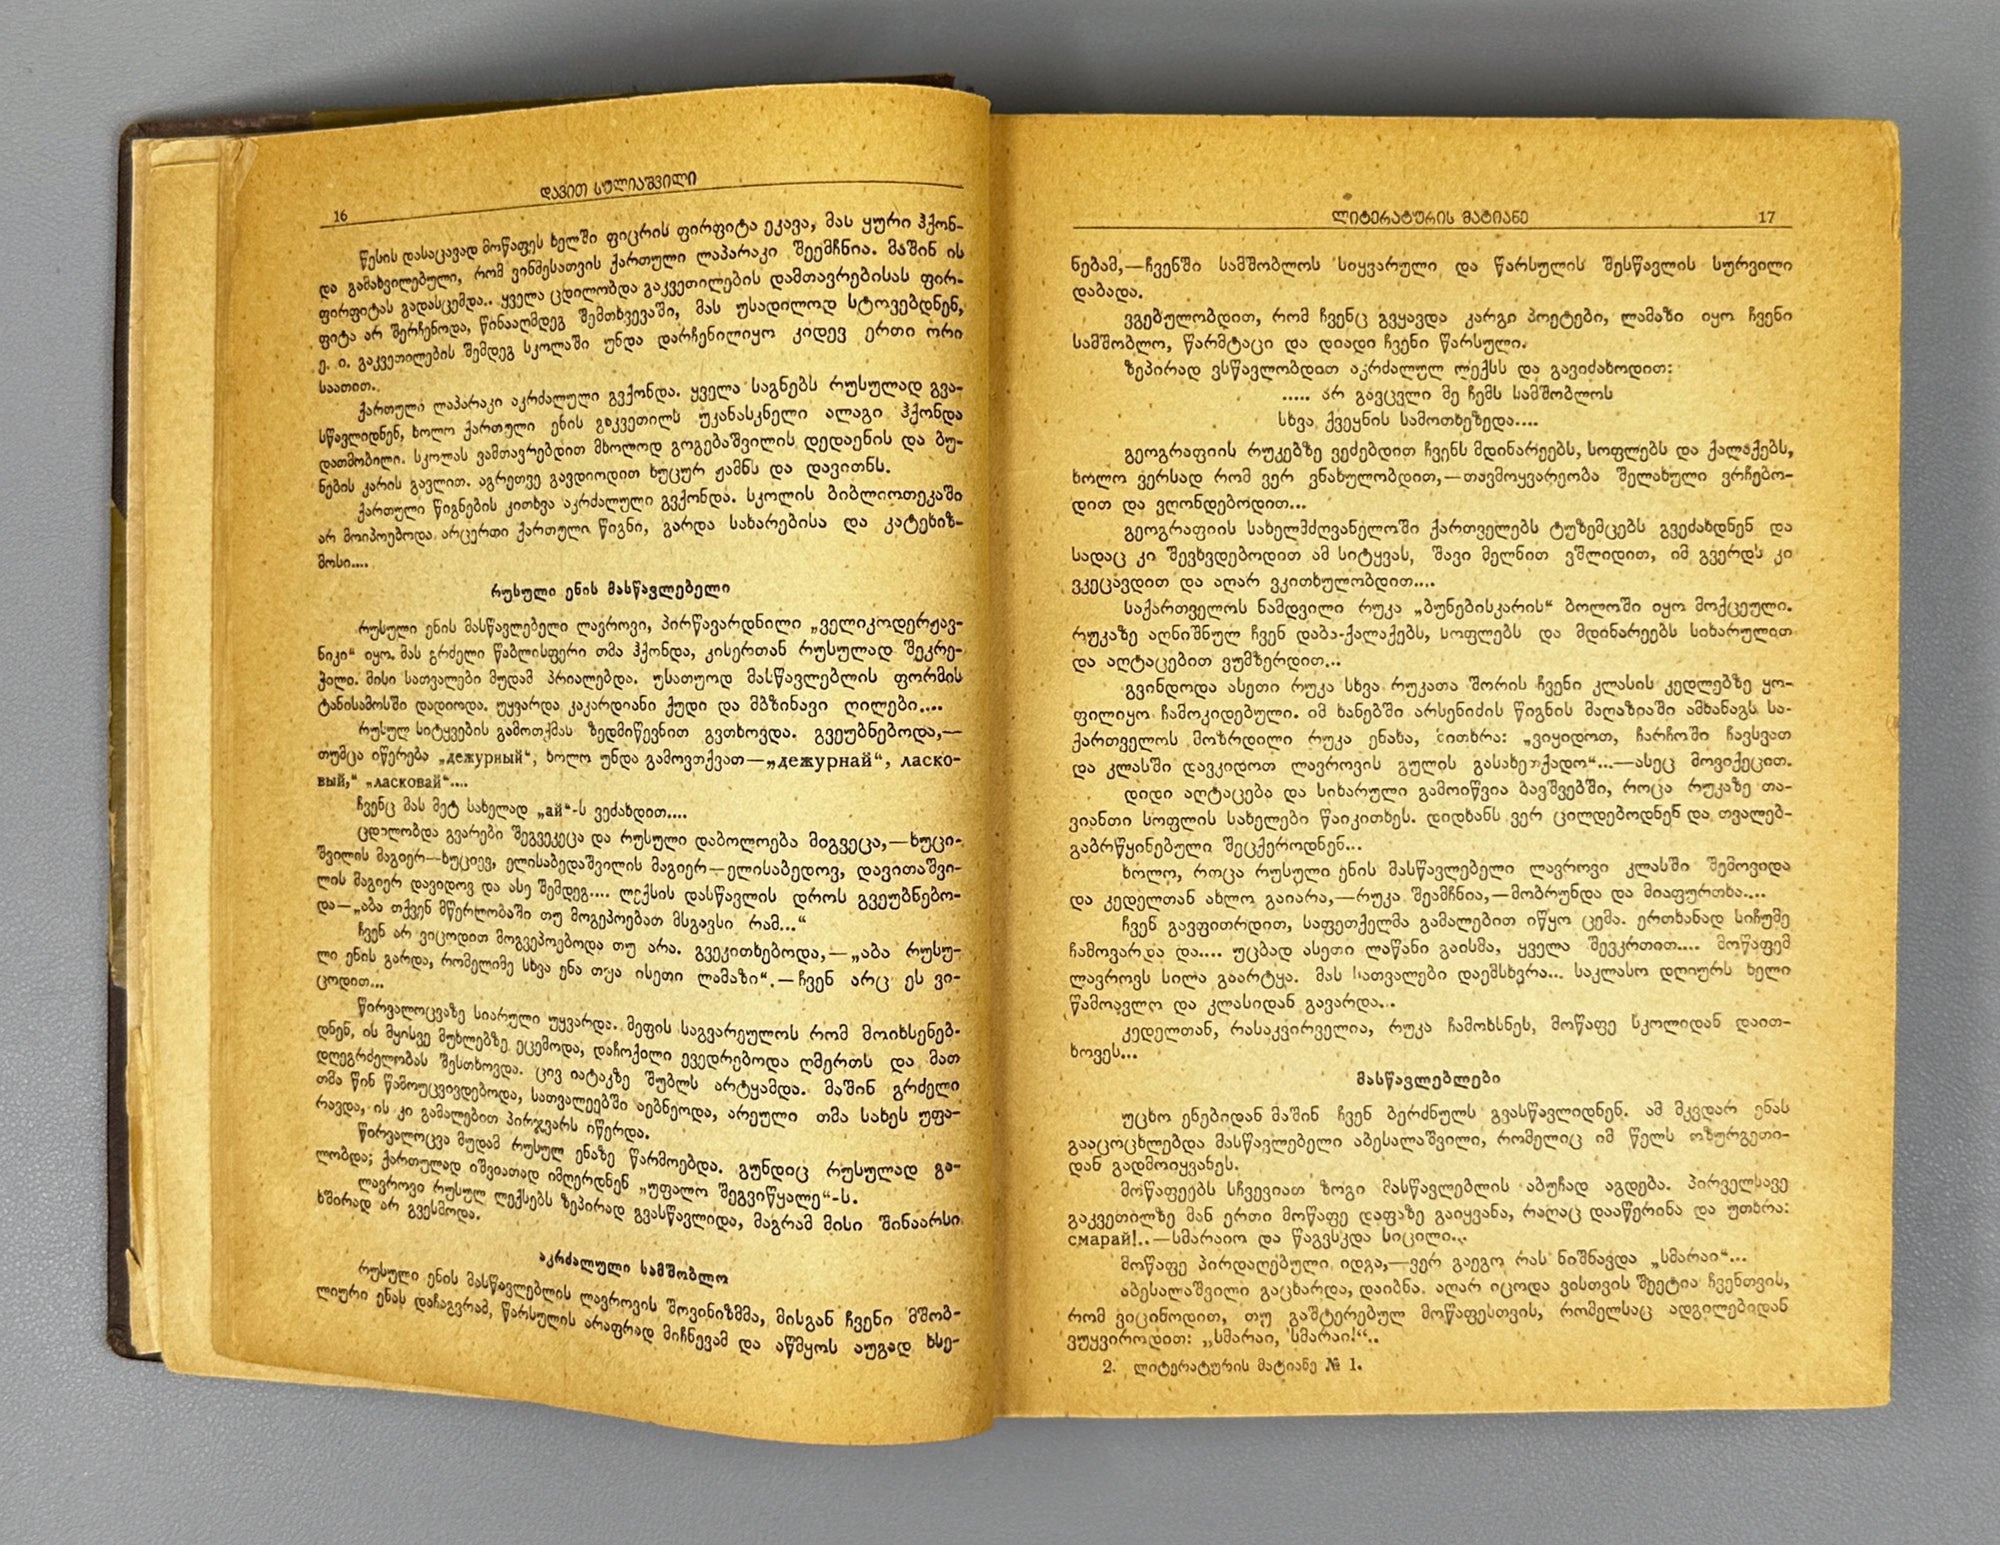 16
ᲓᲐᲕᲘᲗ ᲡᲣᲚᲘᲐᲨᲕᲘᲚᲘ
წესის დასაცავად მოწაფეს ხელში ფიცრის ფირფიტა ეკავა, მას ყური ჰქონ-
და გამახვილებული, რომ ვინმესათვის ქართული ლაპარაკი შეემჩნია. მაშინ ის
ფირფიტას გადასცემდა.. ყველა ცდილობდა გაკვეთილების დამთავრებისას ფირ-
ფიტა არ შერჩენოდა, წინააღმდეგ შემთხვევაში, მას უსადილოდ სტოვებდნენ,
ე. ი. გაკვეთილების შემდეგ სკოლაში უნდა დარჩენილიყო კიდევ ერთი ორი
საათით.
ქართული ლაპარაკი აკრძალული გვქონდა. ყველა საგნებს რუსულად გვა-
სწავლიდნენ, ხოლო ქართული ენის გაკვეთილს უკანასკნელი ალაგი ჰქონდა
დათმობილი. სკოლას ვამთავრებდით მხოლოდ გოგებაშვილის დედაენის და ბუ-
ნების კარის გავლით. აგრეთვე გავდიოდით ხუცურ ჟამნს და დავითნს.
ქართული წიგნების კითხვა აკრძალული გვქონდა. სკოლის ბიბლიოთეკაში
არ მოიპოებოდა არცერთი ქართული წიგნი, გარდა სახარებისა და კატეხიზ-
მოსი....
რუსული ენის მასწავლებელი
რუსული ენის მასწავლებელი ლავროვი, პირწავარდნილი „ველიკოდერჟავ-
ნიკი“ იყო. მას გრძელი წაბლისფერი თმა ჰქონდა, კისერთან რუსულად შეკრე-
ჭილი. მისი სათვალები მუდამ პრიალებდა. უსათუოდ მასწავლებლის ფორმის
ტანისამოსში დადიოდა. უყვარდა კაკარდიანი ქუდი და მბზინავი ღილები....
რუსულ სიტყვების გამოთქმას ზედმიწევნით გვთხოვდა. გვეუბნებოდა,—
თუმცა იწერება „дежурный“, ხოლო უნდა გამოვთქვათ—„дежурнай“, ласко-
вый,“ „ласковай“....
ჩვენც მას მეტ სახელად „ай“-ს ვეძახდით....
ცდილობდა გვარები შეგვეკეცა და რუსული დაბოლოება მიგვეცა,—ხუცი-
შვილის მაგიერ—ხუციევ, ელისაბედაშვილის მაგიერ—ელისაბედოვ, დავითაშვი-
ლის მაგიერ დავიდოვ და ასე შემდეგ.... ლექსის დასწავლის დროს გვეუბნებო-
და—„აბა თქვენ მწერლობაში თუ მოგეპოებათ მსგავსი რამ...“
ჩვენ არ ვიცოდით მოგვეპოებოდა თუ არა. გვეკითხებოდა,—„აბა რუსუ-
ლი ენის გარდა, რომელიმე სხვა ენა თუა ისეთი ლამაზი“.—ჩვენ არც ეს ვი-
ცოდით...
წირვალოცვაზე სიარული უყვარდა. მეფის საგვარეულოს რომ მოიხსენებ-
დნენ, ის მყისვე მუხლებზე ეცემოდა, დაჩოქილი ევედრებოდა ღმერთს და მათ
დღეგრძელობას შესთხოვდა. ცივ იატაკზე შუბლს არტყამდა. მაშინ გრძელი
თმა წინ წამოუცვივდებოდა, სათვალეებში აებნეოდა, არეული თმა სახეს უფა-
რავდა, ის კი გამალებით პირჯვარს იწერდა.
წირვალოცვა მუდამ რუსულ ენაზე წარმოებდა. გუნდიც რუსულად გა-
ლობდა; ქართულად იშვიათად იმღერდნენ „უფალო შეგვიწყალე“-ს.
ლავროვი რუსულ ლექსებს ზეპირად გვასწავლიდა, მაგრამ მისი შინაარსი
ხშირად არ გვესმოდა.
აკრძალული სამშობლო
რუსული ენის მასწავლებლის ლავროვის შოვინიზმმა, მისგან ჩვენი მშობ-
ლიური ენას დაჩაგვრამ, წარსულის არაფრად მიჩნევამ და აწმყოს აუგად ხსე-
ᲚᲘᲢᲔᲠᲐᲢᲣᲠᲘᲡ ᲛᲐᲢᲘᲐᲜᲔ
17
ნებამ,—ჩვენში სამშობლოს სიყვარული და წარსულის შესწავლის სურვილი
დაბადა.
ვგებულობდით, რომ ჩვენც გვყავდა კარგი პოეტები, ლამაზი იყო ჩვენი
სამშობლო, წარმტაცი და დიადი ჩვენი წარსული.
ზეპირად ვსწავლობდით აკრძალულ ლექსს და გავიძახოდით:
..... არ გავცვლი მე ჩემს სამშობლოს
სხვა ქვეყნის სამოთხეზედა....
გეოგრაფიის რუკებზე ვეძებდით ჩვენს მდინარეებს, სოფლებს და ქალაქებს,
ხოლო ვერსად რომ ვერ ვნახულობდით,—თავმოყვარეობა შელახული ვრჩებო-
დით და ვღონდებოდით...
გეოგრაფიის სახელმძღვანელოში ქართველებს ტუზემცებს გვეძახდნენ და
სადაც კი შევხვდებოდით ამ სიტყვას, შავი მელნით ვშლიდით, იმ გვერდს კი
ვკეცავდით და აღარ ვკითხულობდით....
საქართველოს ნამდვილი რუკა „ბუნებისკარის“ ბოლოში იყო მოქცეული.
რუკაზე აღნიშნულ ჩვენ დაბა-ქალაქებს, სოფლებს და მდინარეებს სიხარულით
და აღტაცებით ვუმზერდით...
გვინდოდა ასეთი რუკა სხვა რუკათა შორის ჩვენი კლასის კედლებზე ყო-
ფილიყო ჩამოკიდებული. იმ ხანებში არსენიძის წიგნის მაღაზიაში ამხანაგს სა-
ქართველოს მოზრდილი რუკა ენახა, გვითხრა: „ვიყიდოთ, ჩარჩოში ჩავსვათ
და კლასში დავკიდოთ ლავროვის გულის გასახეთქადო“...—ასეც მოვიქეცით.
დიდი აღტაცება და სიხარული გამოიწვია ბავშვებში, როცა რუკაზე თა-
ვიანთი სოფლის სახელები წაიკითხეს. დიდხანს ვერ ცილდებოდნენ და თვალებ-
გაბრწყინებული შეცქეროდნენ...
ხოლო, როცა რუსული ენის მასწავლებელი ლავროვი კლასში შემოვიდა
და კედელთან ახლო გაიარა,—რუკა შეამჩნია,—მობრუნდა და მიაფურთხა....
ჩვენ გავფითრდით, საფეთქელმა გამალებით იწყო ცემა. ერთხანად სიჩუმე
ჩამოვარდა და.... უცბად ასეთი ლაწანი გაისმა, ყველა შევკრთით.... მოწაფემ
ლავროვს სილა გაარტყა. მას სათვალები დაემსხვრა... საკლასო დღიურს ხელი
წამოავლო და კლასიდან გავარდა...
კედელთან, რასაკვირველია, რუკა ჩამოხსნეს, მოწაფე სკოლიდან დაით-
ხოვეს...
მასწავლებლები
უცხო ენებიდან მაშინ ჩვენ ბერძნულს გვასწავლიდნენ. ამ მკვდარ ენას
გააცოცხლებდა მასწავლებელი აბესალაშვილი, რომელიც იმ წელს ოზურგეთი-
დან გადმოიყვანეს.
მოწაფეებს სჩვევიათ ზოგი მასწავლებლის აბუჩად აგდება. პირველსავე
გაკვეთილზე მან ერთი მოწაფე დაფაზე გაიყვანა, რაღაც დააწერინა და უთხრა:
смарай!..—სმარაიო და წაგვსკდა სიცილი...
მოწაფე პირდაღებული იდგა,—ვერ გაეგო რას ნიშნავდა „სმარაი“...
აბესალაშვილი გაცხარდა, დაიბნა. აღარ იცოდა ვისთვის შეეტია ჩვენთვის,
რომ ვიცინოდით, თუ გაშტერებულ მოწაფესთვის, რომელსაც ადგილებიდან
ვუყვიროდით: „სმარაი, სმარაი!“..
2. ლიტერატურის მატიანე № 1.